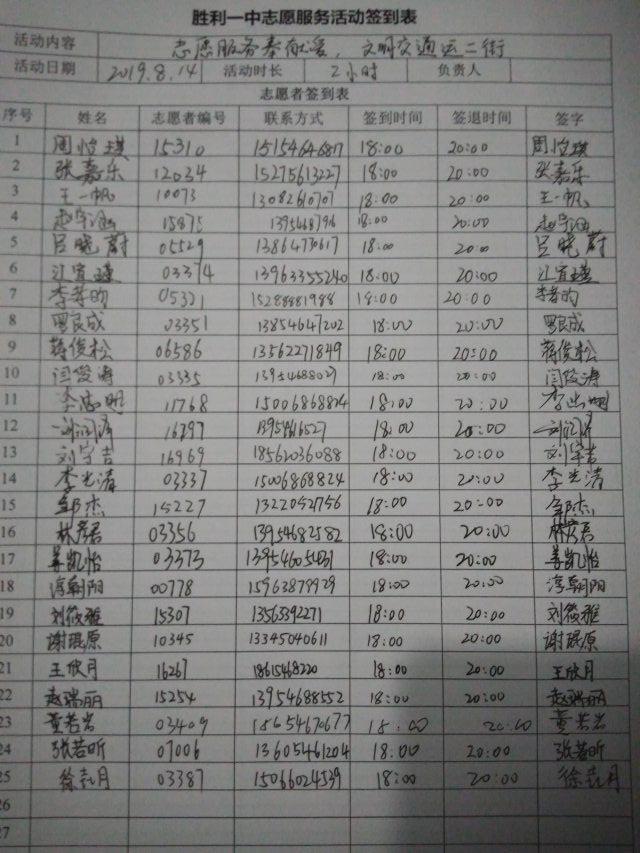 胜利一中志愿服务活动签到表
活动内容 志愿服务奉献爱,文明交通运二街
活动日期 2019.8.14 活动时长 2小时 负责人
志愿者签到表
序号 姓名 志愿者编号 联系方式 签到时间 签退时间 签字
1 周 琪 15310 15154646817 18:00 20:00 周 琪
2 张嘉乐 12034 15275613227 18:00 20:00 张嘉乐
3 王一帆 10073 13082610707 18:00 20:00 王一帆
4 赵宇涵 15875 1395468796 18:00 20:00 赵宇涵
5 吕晓蔚 05529 13864773617 18:00 20:00 吕晓蔚
6 江宜璟 03374 13963355240 18:00 20:00 江宜璟
7 李若昀 05321 15288881988 18:00 20:00 李若昀
8 罗良成 03351 13854647202 18:00 20:00 罗良成
9 蒋俊松 06586 13562271849 18:00 20:00 蒋俊松
10 闫俊涛 03335 13954688027 18:00 20:00 闫俊涛
11 李 明 11768 15006868824 18:00 20:00 李 明
12 刘润泽 16297 13954616527 18:00 20:00 刘润泽
13 刘宇吉 16969 18562036088 18:00 20:00 刘宇吉
14 李光清 03337 15006868824 18:00 20:00 李光清
15 邹杰 15227 1322052756 18:00 20:00 邹杰
16 林彦君 03356 13954682582 18:00 20:00 林彦君
17 姜凯怡 03373 139546051031 18:00 20:00 姜凯怡
18 淳朝阳 00778 15963879929 18:00 20:00 淳朝阳
19 刘筱雅 15307 13563392271 18:00 20:00 刘筱雅
20 谢琨原 10345 13345040611 18:00 20:00 谢琨原
21 王欣月 16267 18615468220 18:00 20:00 王欣月
22 赵瑞丽 15254 13954688552 18:00 20:00 赵瑞丽
23 董若岩 03409 18654670677 18:00 20:00 董若岩
24 张若昕 07006 13605461204 18:00 20:00 张若昕
25 徐 月 03387 15066024539 18:00 20:00 徐 月
26
27